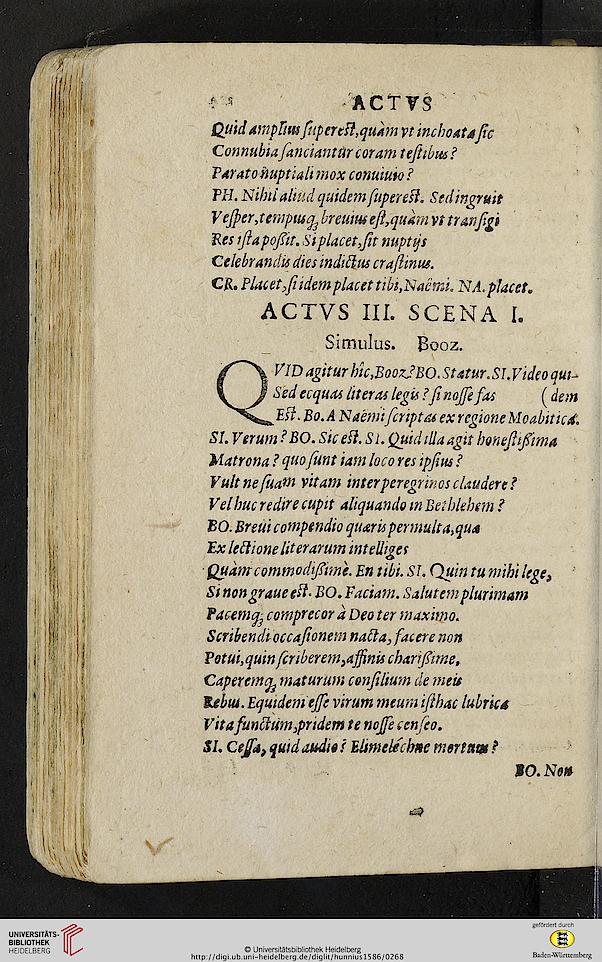 ACTVS
Quid ampliùs superest, quàm vt inchoata sic
Connubia sanciantur coram testibus?
Parato nuptiali mox conuiuio?
PH. Nihil aliud quidem superest. Sed ingruit
Vesper, tempusq; breuius est, quàm vt transigi
Res ista poßit. Si placet, sit nuptijs
Celebrandis dies indictus crastinus.
CR. Placet, si idem placet tibi, Naëmi. NA. placet.
ACTVS III. SCENA I.
Simulus. Booz.
QVID agitur hîc, Booz? BO. Statur. SI. Video qui-
Sed ecquas literas legis? si nosse fas (dem
Est. Bo. A Naëmi scriptas ex regione Moabitica.
SI. Verum? BO. Sic est. SI. Quid illa agit honestißima
Matrona? quo sunt iam loco res ipsius?
Vult ne suam vitam inter peregrinos claudere?
Vel huc redire cupit aliquando in Bethlehem?
BO. Breui compendio quæris permulta, quæ
Ex lectione literarum intelliges
Quàm commodißimè. En tibi. SI. Quin tu mihi lege,
Si non graue est. BO. Faciam. Salutem plurimam
Pacemq; comprecor à Deo ter maximo.
Scribendi occasionem nacta, facere non
Potui, quin scriberem, affinis charißime,
Caperemq; maturum consilium de meis
Rebus. Equidem esse virum meum isthac lubrica
Vita functum, pridem te nosse censeo.
SI. Cessa, quid audio? Elimelechne mortuus?
BO. Non
UNIVERSITÄTS-
BIBLIOTHEK
HEIDELBERG
© Universitätsbibliothek Heidelberg
http://digi.ub.uni-heidelberg.de/diglit/hunnius1586/0268
gefördert durch
Baden-Württemberg